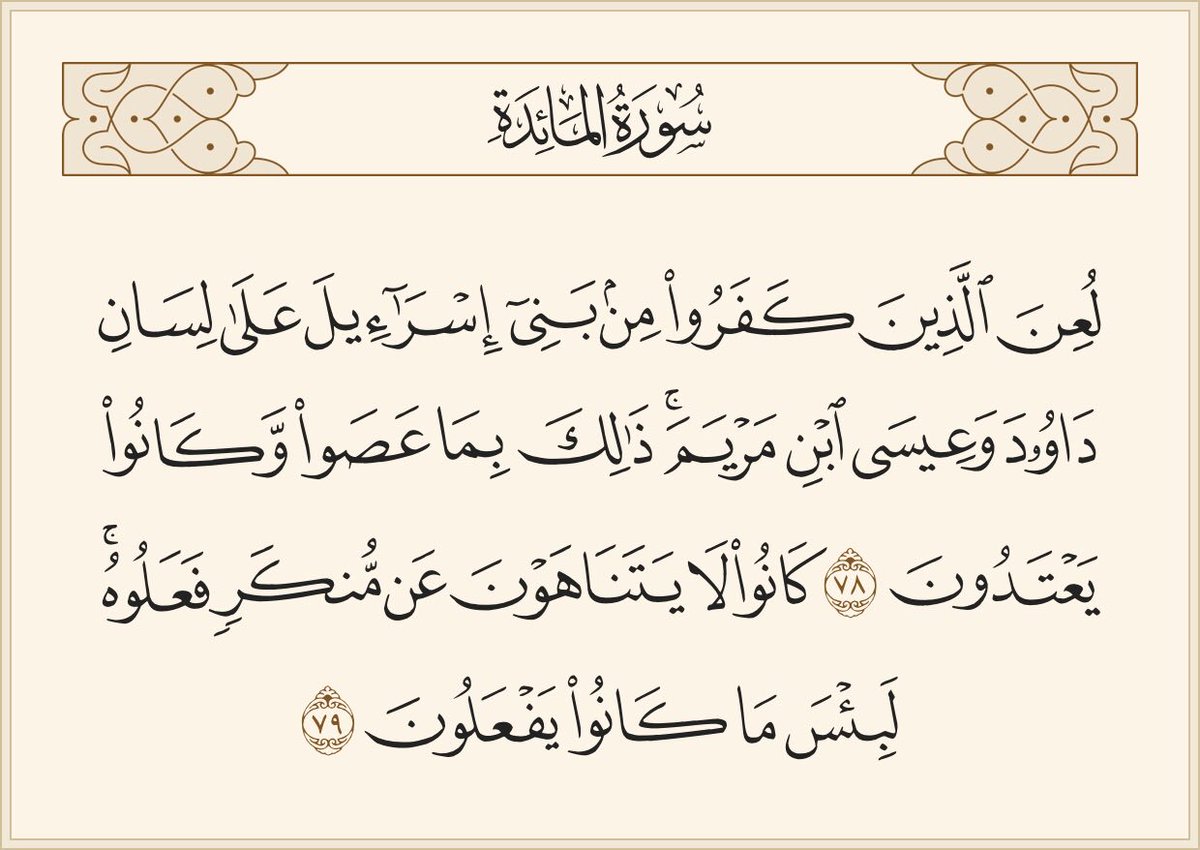 سُورَةُ المَائِدَةِ
لُعِنَ ٱلَّذِينَ كَفَرُوا۟ مِنۢ بَنِىٓ إِسْرَٰٓءِيلَ عَلَىٰ لِسَانِ
دَاوُۥدَ وَعِيسَى ٱبْنِ مَرْيَمَ ۚ ذَٰلِكَ بِمَا عَصَوا۟ وَّكَانُوا۟
يَعْتَدُونَ ٧٨ كَانُوا۟ لَا يَتَنَاهَوْنَ عَن مُّنكَرٍ فَعَلُوهُ ۚ
لَبِئْسَ مَا كَانُوا۟ يَفْعَلُونَ ٧٩